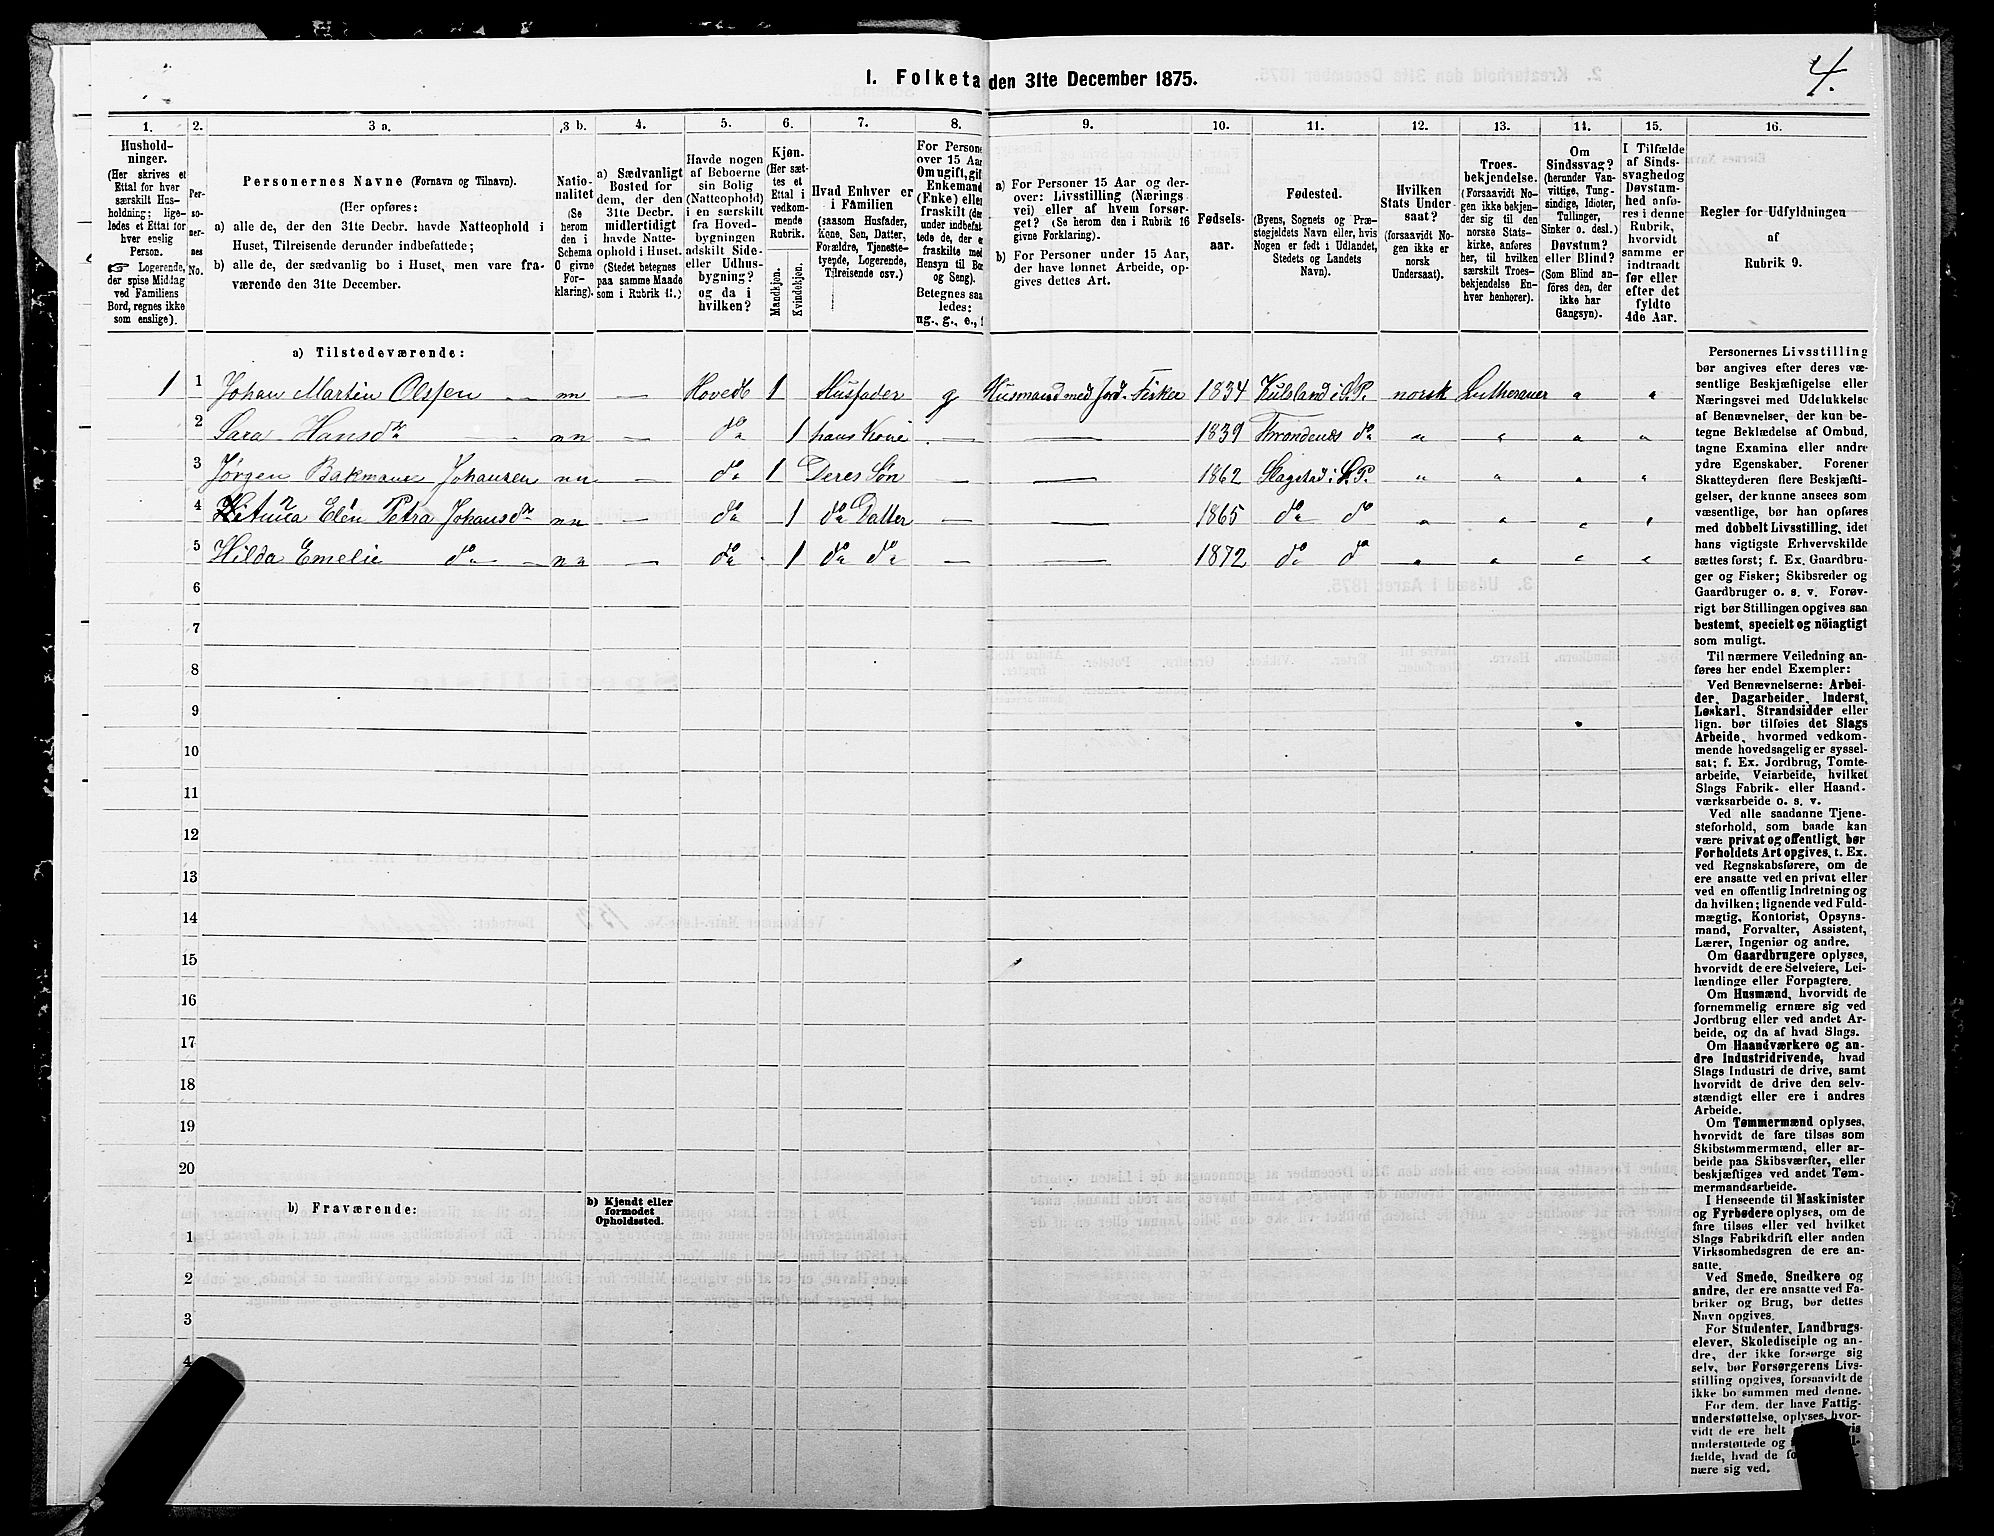 4.
I. Folketa den 31te December 1875.
1. 2. 3 a. 3 b. 4. 5. 6. 7. 8. 9. 10. 11. 12. 13. 14. 15. 16.
Hushold-
ninger.
(Her skrives et
Ettal for hver
særskilt Hus-
holdning; lige-
ledes et Ettal for
hver enslig
Person.
☞ Logerende,
der spise Middag
ved Familiens
Bord, regnes ikke
som enslige).
Per-
so-
ner-
nes
No.
Personernes Navne (Fornavn og Tilnavn).
(Her opføres:
a) alle de, der den 31te Decbr. havde Natteophold i
Huset, Tilreisende derunder indbefattede;
b) alle de, der sædvanlig bo i Huset, men vare fra-
værende den 31te December.
Natio-
nalitet
(Se
herom
den i
Schema
O givne
For-
klaring).
a) Sædvanligt
Bosted for
dem, der den
31te Decbr.
midlertidigt
havde Natte-
ophold i Huset.
(Stedet betegnes
paa samme Maade
som i Rubrik 11.)
Havde nogen
af Beboerne
sin Bolig
(Natteophold)
i en særskilt
fra Hoved-
bygningen
adskilt Side-
eller Udhus-
bygning?
og da i
hvilken?
Kjøn.
(Her sæt-
tes et
Ettal i
vedkom-
mende
Rubrik.
Mandkjøn.
Kvindekjøn.
Hvad Enhver er
i Familien
(saasom Husfader,
Kone, Søn, Datter,
Forældre, Tjeneste-
tyende, Logerende,
Tilreisende osv.)
For Persone
over 15 Aar
Om ugift, gif
Enkemand
(Enke) elle
fraskilt (de
under indbefat-
tede de, der e
fraskilte me
Hensyn til Bo
og Seng).
Betegnes saa
ledes:
ug., g., e., f
a) For Personer 15 Aar og der-
over: Livsstilling (Nærings
vei) eller af hvem forsør-
get? (Se herom den i Rubrik 16
givne Forklaring).
b) For Personer under 15 Aar,
der have lønnet Arbeide, op-
gives dettes Art.
Fødsels-
aar.
Fødested.
(Byens, Sognets og Præ-
stegjeldets Navn eller, hvis
Nogen er født i Udlandet,
Stedets og Landets
Navn).
Hvilken
Stats Under
saat?
(forsaavidt No-
gen ikke er
norsk
Undersaat).
Troes-
bekjendelse.
(Forsaavidt No-
gen ikke bekjen-
der sig til den
norske Stats-
kirke, anføres
her, til hvilken
særskilt Troes-
bekjendelse En-
hver henhører).
Om
Sindssvag?
(herunder Van-
vittige, Tung-
sindige, Idioter,
Tullinger,
Sinker o. desl.)
Døvstum?
eller Blind?
(Som Blind an-
føres den, der
ikke har
Gangsyn).
I Tilfælde
af Sinds-
svaghedog
Døvstum-
hed anfø-
res i denne
Rubrik,
hvorvidt
samme er
indtraadt
før eller
efter det
fyldte
4de Aar.
Regler for Udfyldningen
af
Rubrik 9.
a) Tilstedeværende:
1 1 Johan Martin Olssen nn — Hovedb 1 Husfader g Husmand med Jord. Fisker 1834 i S. P. norsk Lutheraner " "
2 Sara Hansdr nn — do 1 hans Kone — — 1839 Trondenes do " " " "
3 Jørgen Bakman Johansen nn — do 1 Deres Søn — 1862 Slagstad i S. P. " " " "
4 Elen Petra Johansdr nn — do 1 do Datter — — 1865 do do " " " "
5 Hilda Emelie do nn — do 1 do do — — 1872 do do " " " "
6
7
8
9
10
11
12
13
14
15
16
17
18
19
20
b) Fraværende:
b) Kjendt eller
formodet
Opholdssted.
1
2
3
4
Personernes Livsstilling
bør angives efter deres væ-
sentlige Beskjæftigelse eller
Næringsvei med Udelukkelse
af Benævnelser, der kun be-
tegne Beklædelse af Ombud,
tagne Examina eller andre
ydre Egenskaber. Forener
Skatteyderen flere Beskjæfti-
gelser, der kunne ansees som
væsentlige, bør han opføres
med dobbelt Livsstilling, idet
hans vigtigste Erhvervskilde
sættes først; f. Ex. Gaardbru-
ger og Fisker; Skibsreder og
Gaardbruger o. s. v. Forøv-
rigt bør Stillingen opgives saa
bestemt, specielt og nöiagtigt
som muligt.
Til nærmere Veiledning an-
føres her endel Exempler:
Ved Benævnelserne: Arbei-
der, Dagarbeider, Inderst,
Løskarl, Strandsidder eller
lign. bør tilføies det Slags
Arbeide, hvormed vedkom-
mende hovedsagelig er syssel-
sat; f. Ex. Jordbrug, Tomte-
arbeide, Veiarbeide, hvilket
Slags Fabrik- eller Haand-
værksarbeide o. s. v.
Ved alle saadanne Tjene-
steforhold, som baade kan
være privat og offentligt, bør
Forholdets Art opgives, t. Ex.
ved Regnskabsførere, om de
ere ansatte ved en privat eller
ved en offentlig Indretning og
da hvilken; lignende ved Fuld-
mægtig, Kontorist, Opsyns-
mand, Forvalter, Assistent,
Lærer, Ingeniør og andre.
Om Gaardbrugere oplyses,
hvorvidt de ere Selveiere, Lei-
lændinge eller Forpagtere.
Om Husmænd, hvorvidt de
fornemmelig ernære sig ved
Jordbrug eller ved andet Ar-
beide, og da af hvad Slags.
Om Haandværkere og an-
dre Industridrivende, hvad
Slags Industri de drive, samt
hvorvidt de drive den selv-
stændigt eller ere i andres
Arbeide.
Om Tømmermænd oplyses,
hvorvidt de fare tilsøs som
Skibstømmermænd, eller ar-
beide paa Skibsværfter, eller
beskjæftiges ved andet Tøm-
mermandsarbeide.
I Henseende til Maskinister
og Fyrbødere oplyses, om de
fare tilsøs eller ved hvilket
Slags Fabrikdrift eller anden
Virksomhedsgren de ere an-
satte.
Ved Smede, Snedkere og
andre, der ere ansatte ved Fa-
briker og Brug, bør dettes
Navn opgives.
For Studenter, Landbrugs-
elever, Skoledisciple og an-
dre, der ikke forsørge sig
selv, bør Forsørgerens Livs-
stilling opgives, forsaavidt de
ikke bo sammen med denne.
For dem, der have Fattig-
understøttelse, oplyses, hvor-
vidt de ere helt
understøttede og
fælde, hvad de
nære sig ved.